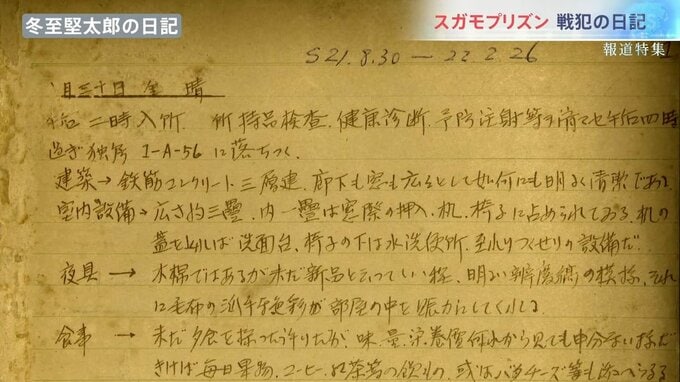 冬至堅太郎の日記
スガモプリズン 戦犯の日記
報道特集
S21.8.30 — 22.2.26
月三十日 金 晴
二時入所. 所持品検査, 健康診断, 予防注射等を済ませ午后四時
過ぎ独房 1-A-56 に落ちつく.
建築→鉄筋コンクリート三層建. 廊下も窓も広々として如何にも明るく清潔である
室内設備→広さ約三畳. 内一畳は窓際の押入. 机. 椅子に占められてゐる. 机の
蓋を とれば洗面台. 椅子の下は水洗便所. 至れりつくせりの設備だ.
夜具 → 木綿ではあるが未だ新品と云つていい程. 明るい 模様, それ
に毛布の派手な色彩が部屋の中を賑かにしてくれる.
食事 → 未だ夕食を採つた許りだが, 味, 量, 何れから見ても申分ない様だ
きけば毎日果物. コーヒー. 紅茶等の飲もの. 或は バタチーズ等も